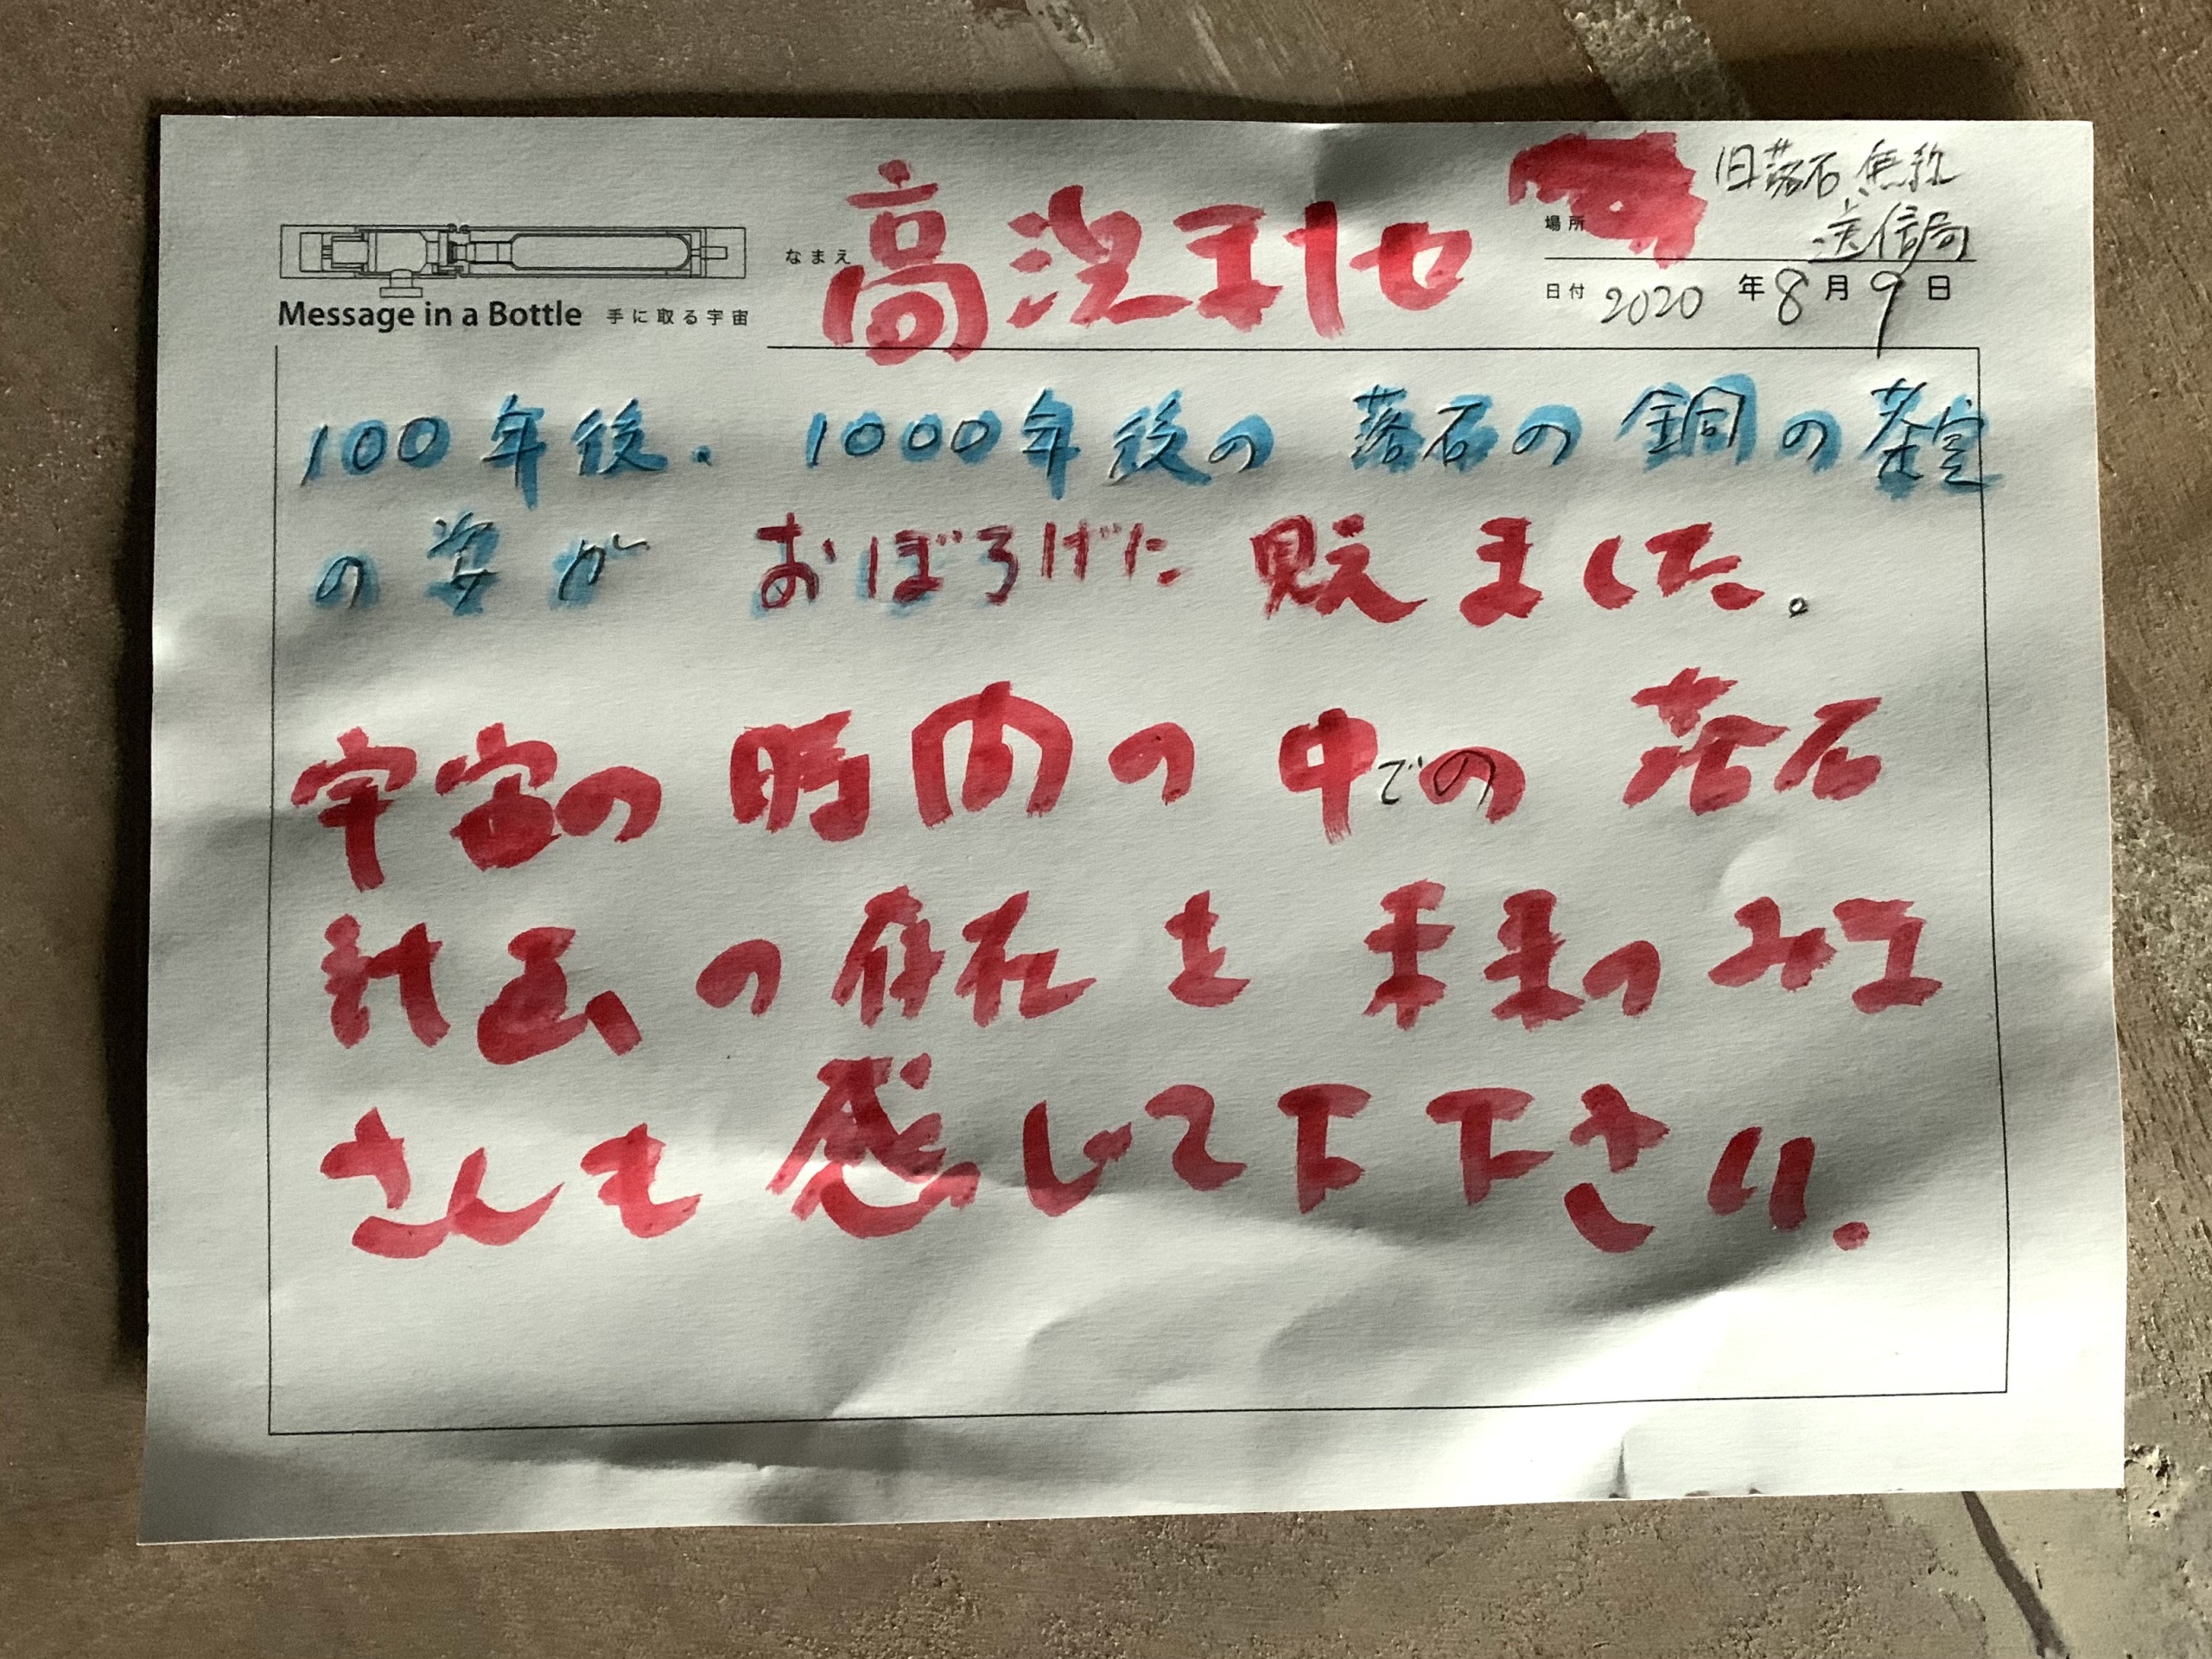 Message in a Bottle 手に取る宇宙
なまえ 高沢
場所 旧落石無線
送信局
日付 2020年8月9日
100年後. 1000年後の落石の銅の茶室
の姿が おぼろげた 見えました。
宇宙の時間の中での落石
計画の存在を未来のみな
さんも感じて下下さい.